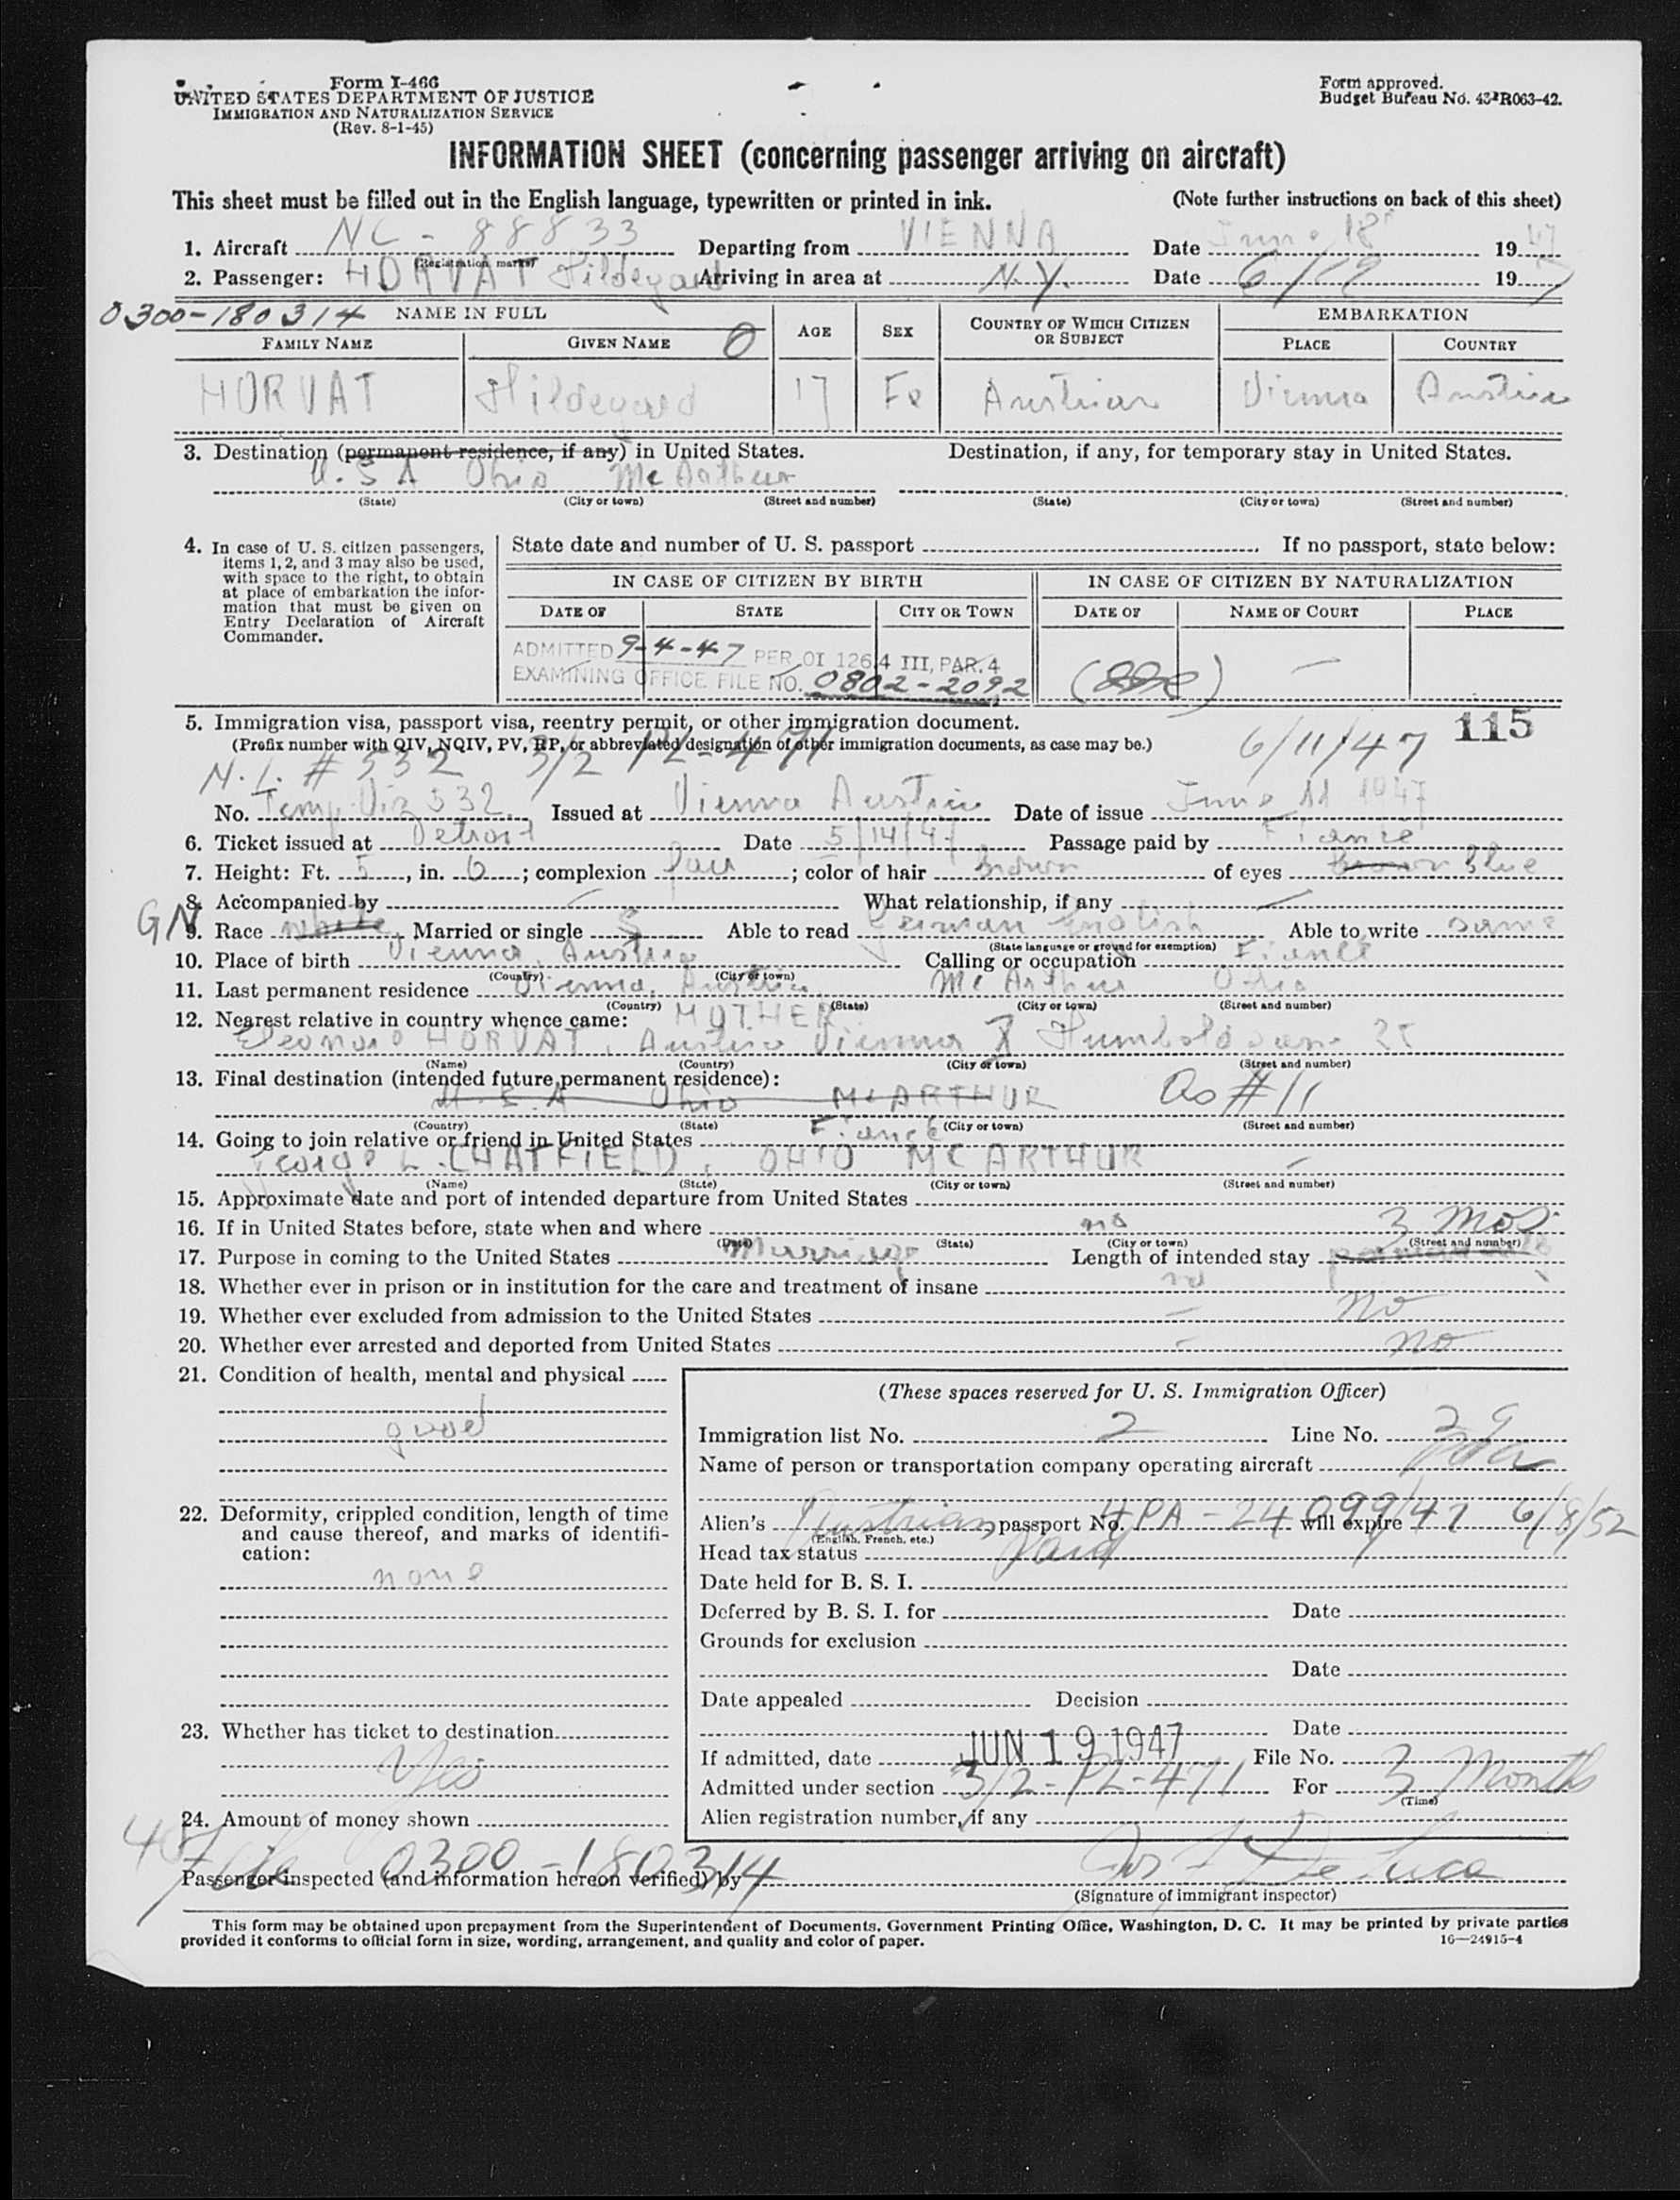 Form I-466
UNITED STATES DEPARTMENT OF JUSTICE
IMMIGRATION AND NATURALIZATION SERVICE
(Rev. 8-1-45)
Form approved.
Budget Bureau No. 43-R063-42.
INFORMATION SHEET (concerning passenger arriving on aircraft)
This sheet must be filled out in the English language, typewritten or printed in ink. (Note further instructions on back of this sheet)
1. Aircraft NC - 88833 Departing from VIENNA Date June 18 1947
(Registration marks)
2. Passenger: HORVAT Hildegard Arriving in area at N.Y. Date 6/19 1947
0300-180314 NAME IN FULL AGE SEX COUNTRY OF WHICH CITIZEN OR SUBJECT EMBARKATION
FAMILY NAME GIVEN NAME 0 PLACE COUNTRY
HORVAT Hildegard 17 Fe Austrian Vienna Austria
3. Destination (permanent residence, if any) in United States. Destination, if any, for temporary stay in United States.
U.S.A Ohio Mc Arthur
(State) (City or town) (Street and number) (State) (City or town) (Street and number)
4. In case of U. S. citizen passengers, items 1, 2, and 3 may also be used, with space to the right, to obtain at place of embarkation the information that must be given on Entry Declaration of Aircraft Commander.
State date and number of U. S. passport If no passport, state below:
IN CASE OF CITIZEN BY BIRTH IN CASE OF CITIZEN BY NATURALIZATION
DATE OF STATE CITY OR TOWN DATE OF NAME OF COURT PLACE
ADMITTED 9-4-47 PER OI 126.4 III, PAR. 4
EXAMINING OFFICE FILE NO. 0802-2092
5. Immigration visa, passport visa, reentry permit, or other immigration document. 115
(Prefix number with QIV, NQIV, PV, RP, or abbreviated designation of other immigration documents, as case may be.) 6/11/47
# 532 3/2 PL-471
No. Temp. Vis 532 Issued at Vienna Austria Date of issue June 11 1947
6. Ticket issued at Detroit Date 5/14/47 Passage paid by Fiance
7. Height: Ft. 5, in. 6; complexion fair; color of hair brown of eyes brown Blue
8. Accompanied by — What relationship, if any —
GN
9. Race white Married or single S Able to read German English Able to write same
(State language or ground for exemption)
10. Place of birth Vienna, Austria Calling or occupation Fiancé
(Country) (City or town)
11. Last permanent residence Vienna, Austria Mc Arthur Ohio
(Country) (State) (City or town) (Street and number)
12. Nearest relative in country whence came: MOTHER
HORVAT, Austria Vienna X 25
(Name) (Country) (City or town) (Street and number)
13. Final destination (intended future permanent residence):
U.S.A Ohio McARTHUR As #11
(Country) (State) (City or town) (Street and number)
14. Going to join relative or friend in United States Fiancé
George L. CHATFIELD, OHIO MC ARTHUR —
(Name) (State) (City or town) (Street and number)
15. Approximate date and port of intended departure from United States
16. If in United States before, state when and where no 3 Mos.
(Date) (State) (City or town) (Street and number)
17. Purpose in coming to the United States Marriage Length of intended stay
18. Whether ever in prison or in institution for the care and treatment of insane no
19. Whether ever excluded from admission to the United States — No
20. Whether ever arrested and deported from United States - No
21. Condition of health, mental and physical
good
22. Deformity, crippled condition, length of time and cause thereof, and marks of identification:
none
23. Whether has ticket to destination
Yes
24. Amount of money shown
(These spaces reserved for U. S. Immigration Officer)
Immigration list No. 2 Line No. 29
Name of person or transportation company operating aircraft
Alien's Austrian passport No. 4PA-24099/47 will expire 6/8/52
(English, French, etc.)
Head tax status Paid
Date held for B. S. I.
Deferred by B. S. I. for Date
Grounds for exclusion
Date
Date appealed Decision
Date
If admitted, date JUN 19 1947 File No.
Admitted under section 3/2-PL-471 For 3 Months
(Time)
Alien registration number, if any
File 0300-180314
Passenger inspected (and information hereon verified) by Jos F De Luca
(Signature of immigrant inspector)
This form may be obtained upon prepayment from the Superintendent of Documents, Government Printing Office, Washington, D. C. It may be printed by private parties
provided it conforms to official form in size, wording, arrangement, and quality and color of paper. 16—24915-4